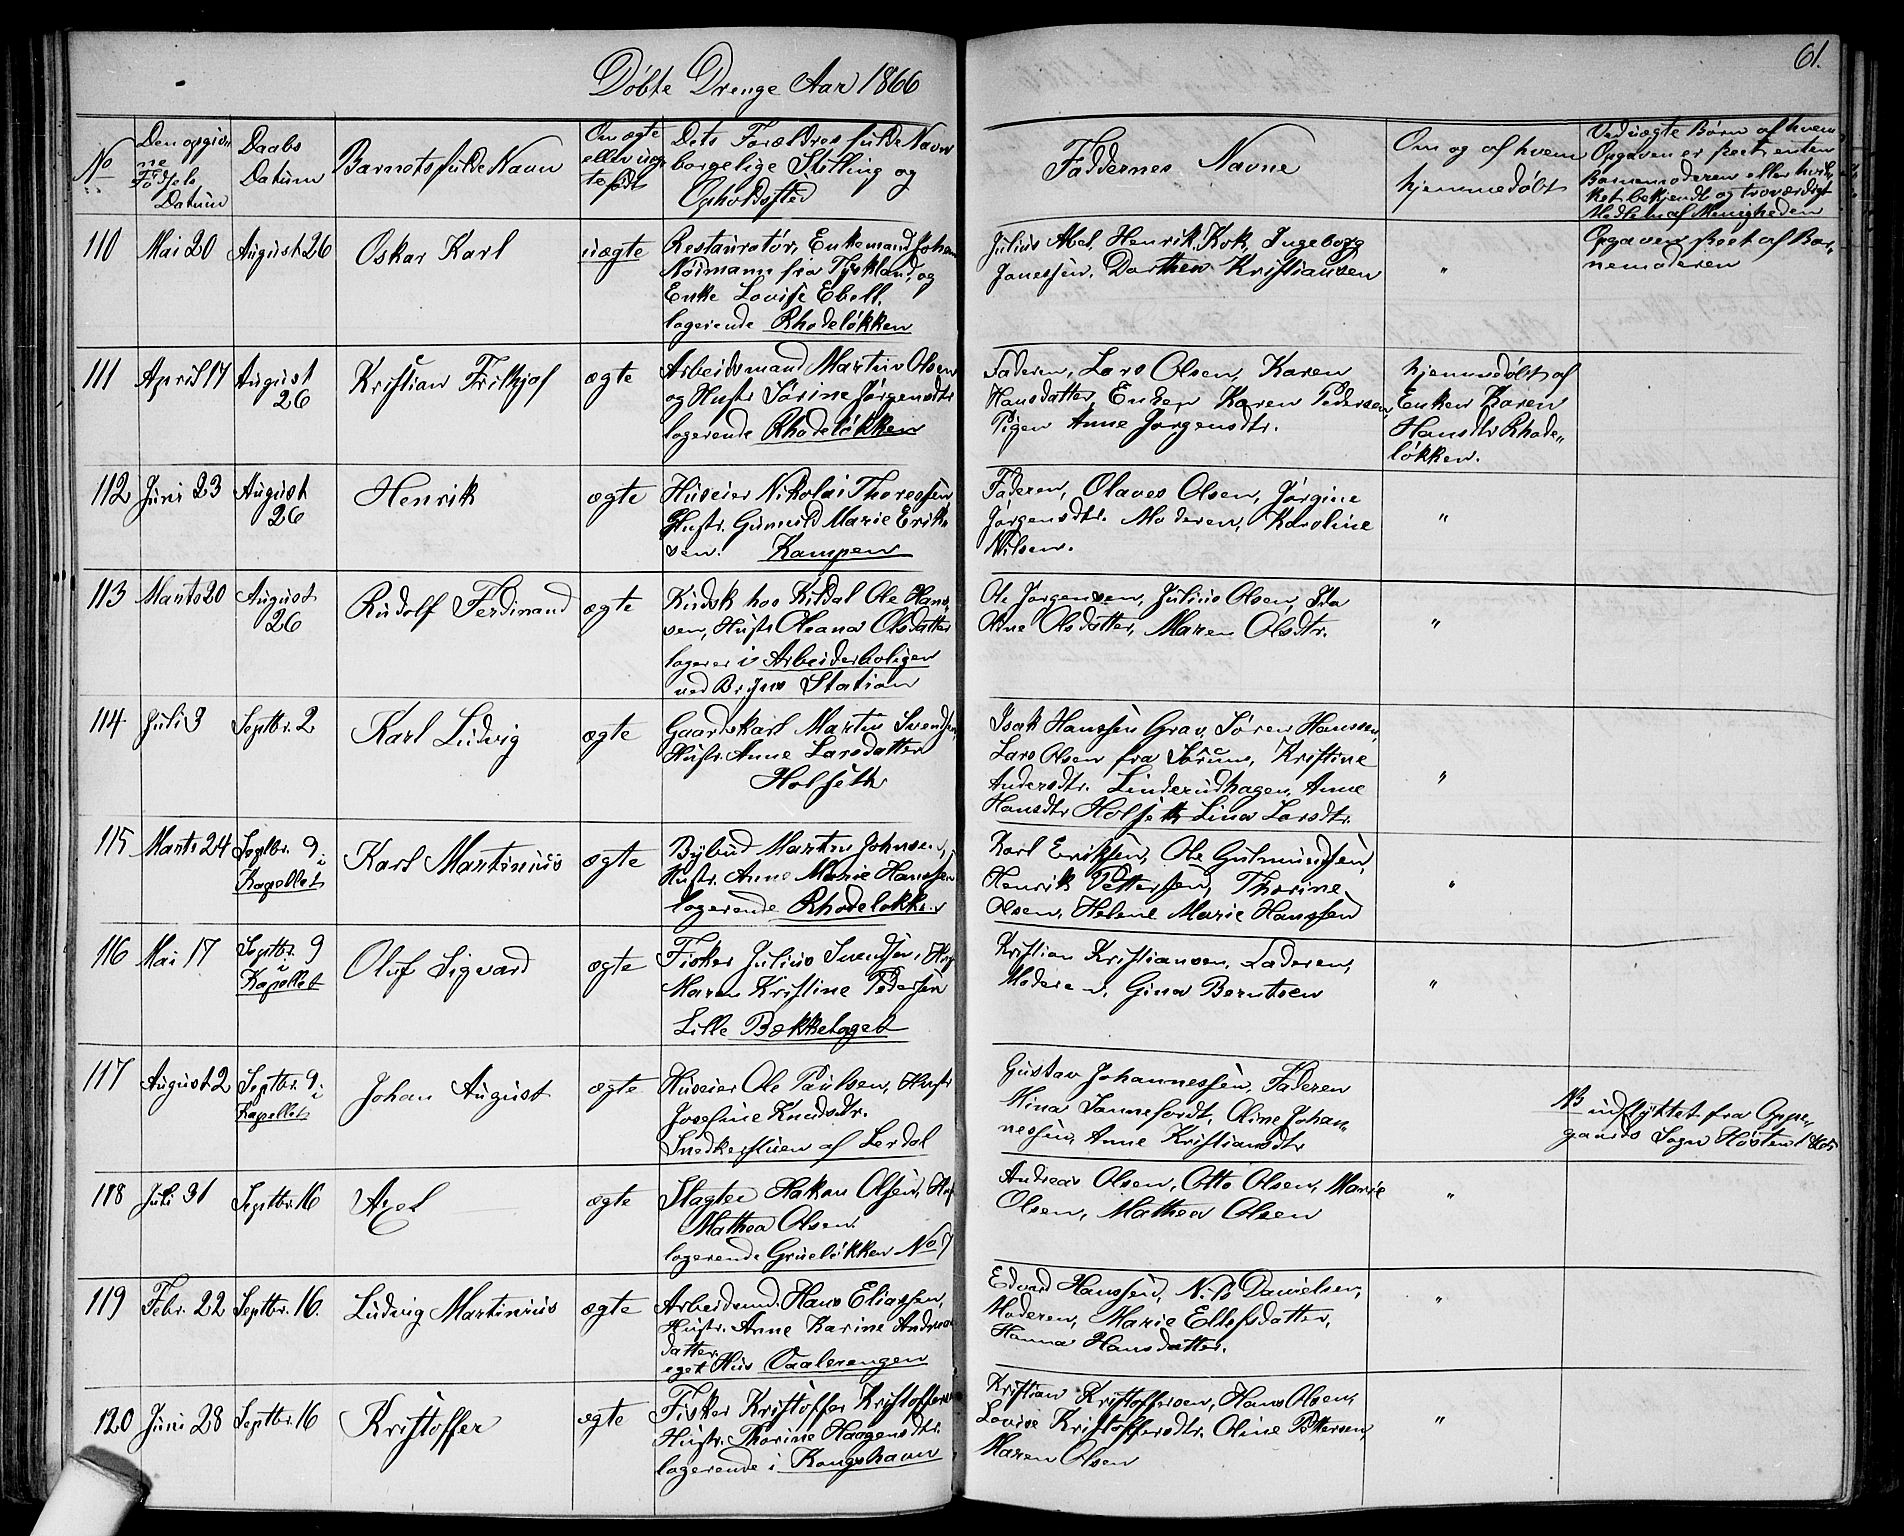 61.
Döbte Drenge Aar 1866
No
Den opgivne Fødsels Datum
Daabs Datum
Barnets fulde Navn
Om ægte eller uægte født
Dets Forældres fulde Navn borgelige Stilling og Opholdssted
Faddernes Navne
Om og af hvem hjemmedøbt
Ved uægte Børn af hvem Opgaven er skeet enten Barnemoderen eller hvilket bekjendt og troværdigt Medlem af Menigheden
110 Mai 20 August 26 Oskar Karl uægte
Restauratør, Enkemand Johan
Neimann fra Tyskland, og
Enke Lovise Ebell.
logerende Rhodeløkken
Julius Abel, Henrik Kok, Ingeborg
Janessen, Dorthea Kristiansen
"
Opgaven skeet af Bar-
nemoderen
111 April 17 August 26 Kristian Frithjof ægte
Arbeidsmand Martin Olsen
og Hustr Sørine Jørgensdtr
logerende Rhodeløkken
Faderen, Lars Olsen, Karen
Hansdatter, Enken Karen Pedersen,
Pigen Anne Jørgensdtr.
hjemmedøbt af
Enken Karen
Hansdtr Rhode-
løkken.
112 Juni 23 August 26 Henrik ægte
Huseier Nikolai Thoressen
Hustr. Gunnild Marie Erik-
sen. Kampen
Faderen, Olaves Olsen, Jørgine
Jørgensdtr. Moderen, Karoline
Nilsen.
"
113 Marts 20 August 26 Rudolf Ferdinand ægte
Kudsk hos Kildal Ole Han-
sen, Hustr Oleana Olsdatter
logerer i Arbeiderboligen
ved Bryns Station
Ole Jørgensen, Julius Olsen, Ida
Oline Olsdatter, Maren Olsdtr.
"
114 Juli 3 Septbr. 2 Karl Ludvig ægte
Gaardskarl Martin Svendsen,
Hustr. Anne Larsdatter
Holseth
Isak Hanssen Grav, Søren Hanssen,
Lars Olsen fra Sørum, Kristine
Andersdtr. Linderudhagen, Anne
Hansdtr Holseth, Lina Larsdtr.
"
115 Marts 24 Septbr. 9 i Kapellet Karl Martinius ægte
Bybud Martin Johnsen,
Hustr. Anne Marie Hanssen
logerende Rhodeløkken
Karl Eriksen, Ole Gulmundsen,
Henrik Pettersen, Thorine
Olsen, Helene Marie Hanssen
"
116 Mai 17 Septbr. 9 i Kapellet Oluf Sigvard ægte
Fisker Julius Svendsen, Hus
Maren Kristine Pedersen
Lille Bækkelaget
Kristian Kristiansen, Faderen,
Moderen, Gina Berntsen
"
117 August 2 Septbr. 9 i Kapellet Johan August ægte
Huseier Ole Paulsen, Hustr
Josefine Knudsdtr.
Snedkerstuen af Lerdal
Gustav Johannessen, Faderen
Mina Sannefordt, Oline Johan-
nessen, Anne Kristiansdtr
NB indflyttet fra Oppe-
gaards Sogn Høsten 1865
118 Juli 31 Septbr. 16 Axel ægte
Slagter Hakon Olsen, Hus
Mathea Olsen.
logerende Grueløkken No 7
Andreas Olsen, Otto Olsen, Marie
Olsen, Mathea Olsen
"
119 Febr. 22 Septbr. 16. Ludvig Martinius ægte
Arbeidsmd. Hans Eliassen,
Hustr. Anne Karine Andreas
datter.
eget Hus Vaalerengen
Edvard Hanssen, Nils Danielsen,
Moderen, Marie Ellefsdatter,
Hanna Hansdatter.
"
120 Juni 28 Septbr. 16 Kristoffer ægte
Fisker Kristoffer Kristoffersen
Hustr. Thorine Haagensdtr.
logerende i Kongshavn
Kristian Kristoffersen, Hans Olsen,
Lovise Kristoffersdtr. Oline Pettersen,
Maren Olsen
"